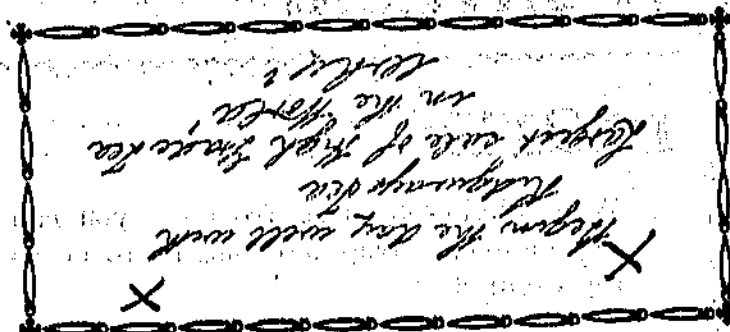 Begin the day well with
Ridgways Tea
Largest sale of High Grade Tea
in the World,